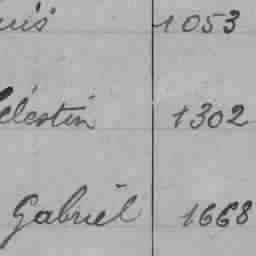 uis 1053
élestin 1302
Gabriel 1668